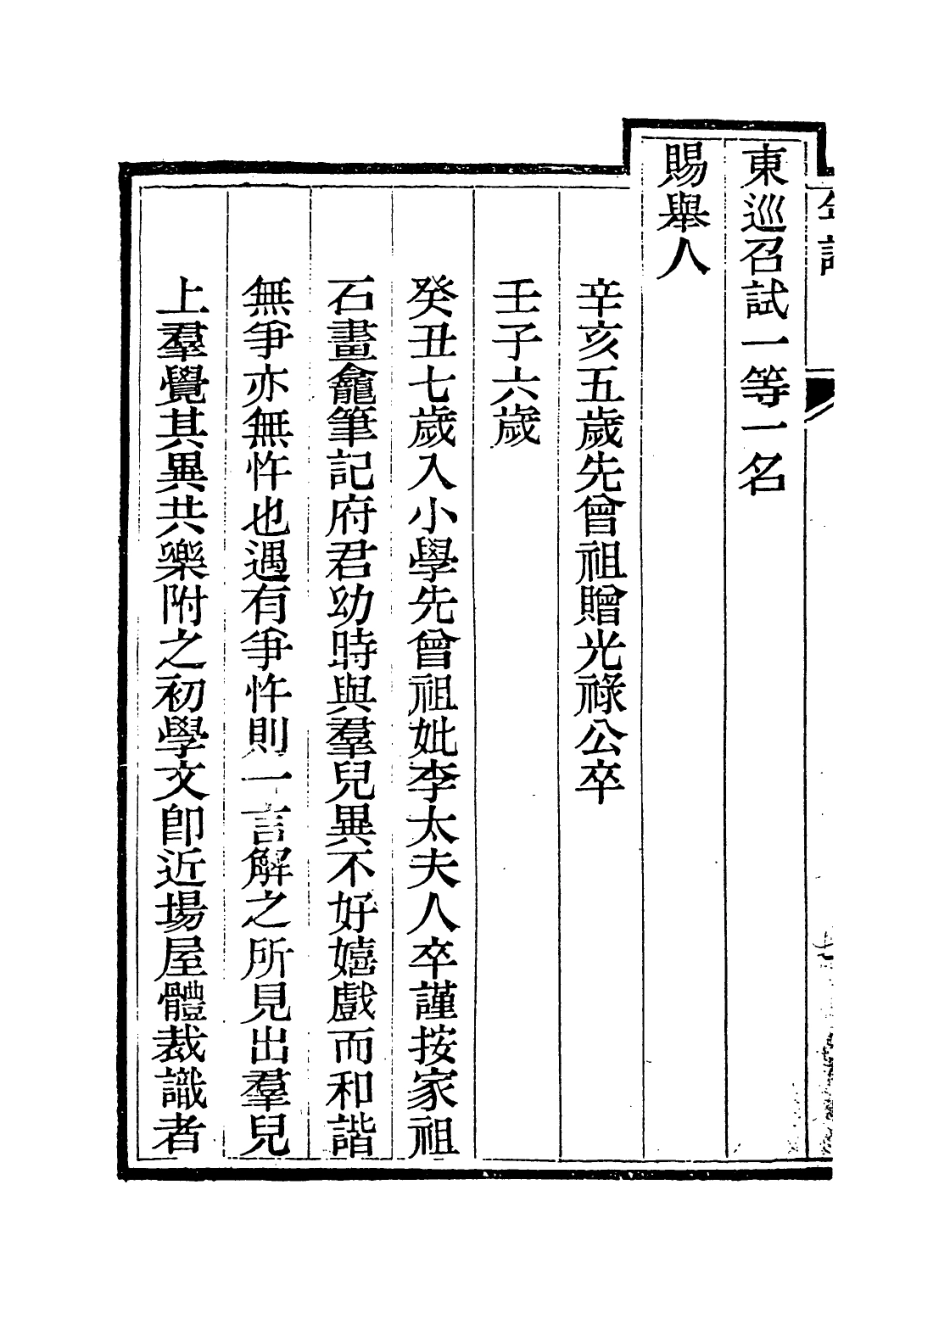 東巡召試一等一名
賜舉人
辛亥五歲先曾祖贈光祿公卒
壬子六歲
癸丑七歲入小學先曾祖妣李太夫人卒謹按家祖
石畫龕筆記府君幼時與羣兒異不好嬉戲而和諧
無爭亦無忤也遇有爭忤則一言解之所見出羣兒
上羣覺其異共樂附之初學文卽近場屋體裁識者